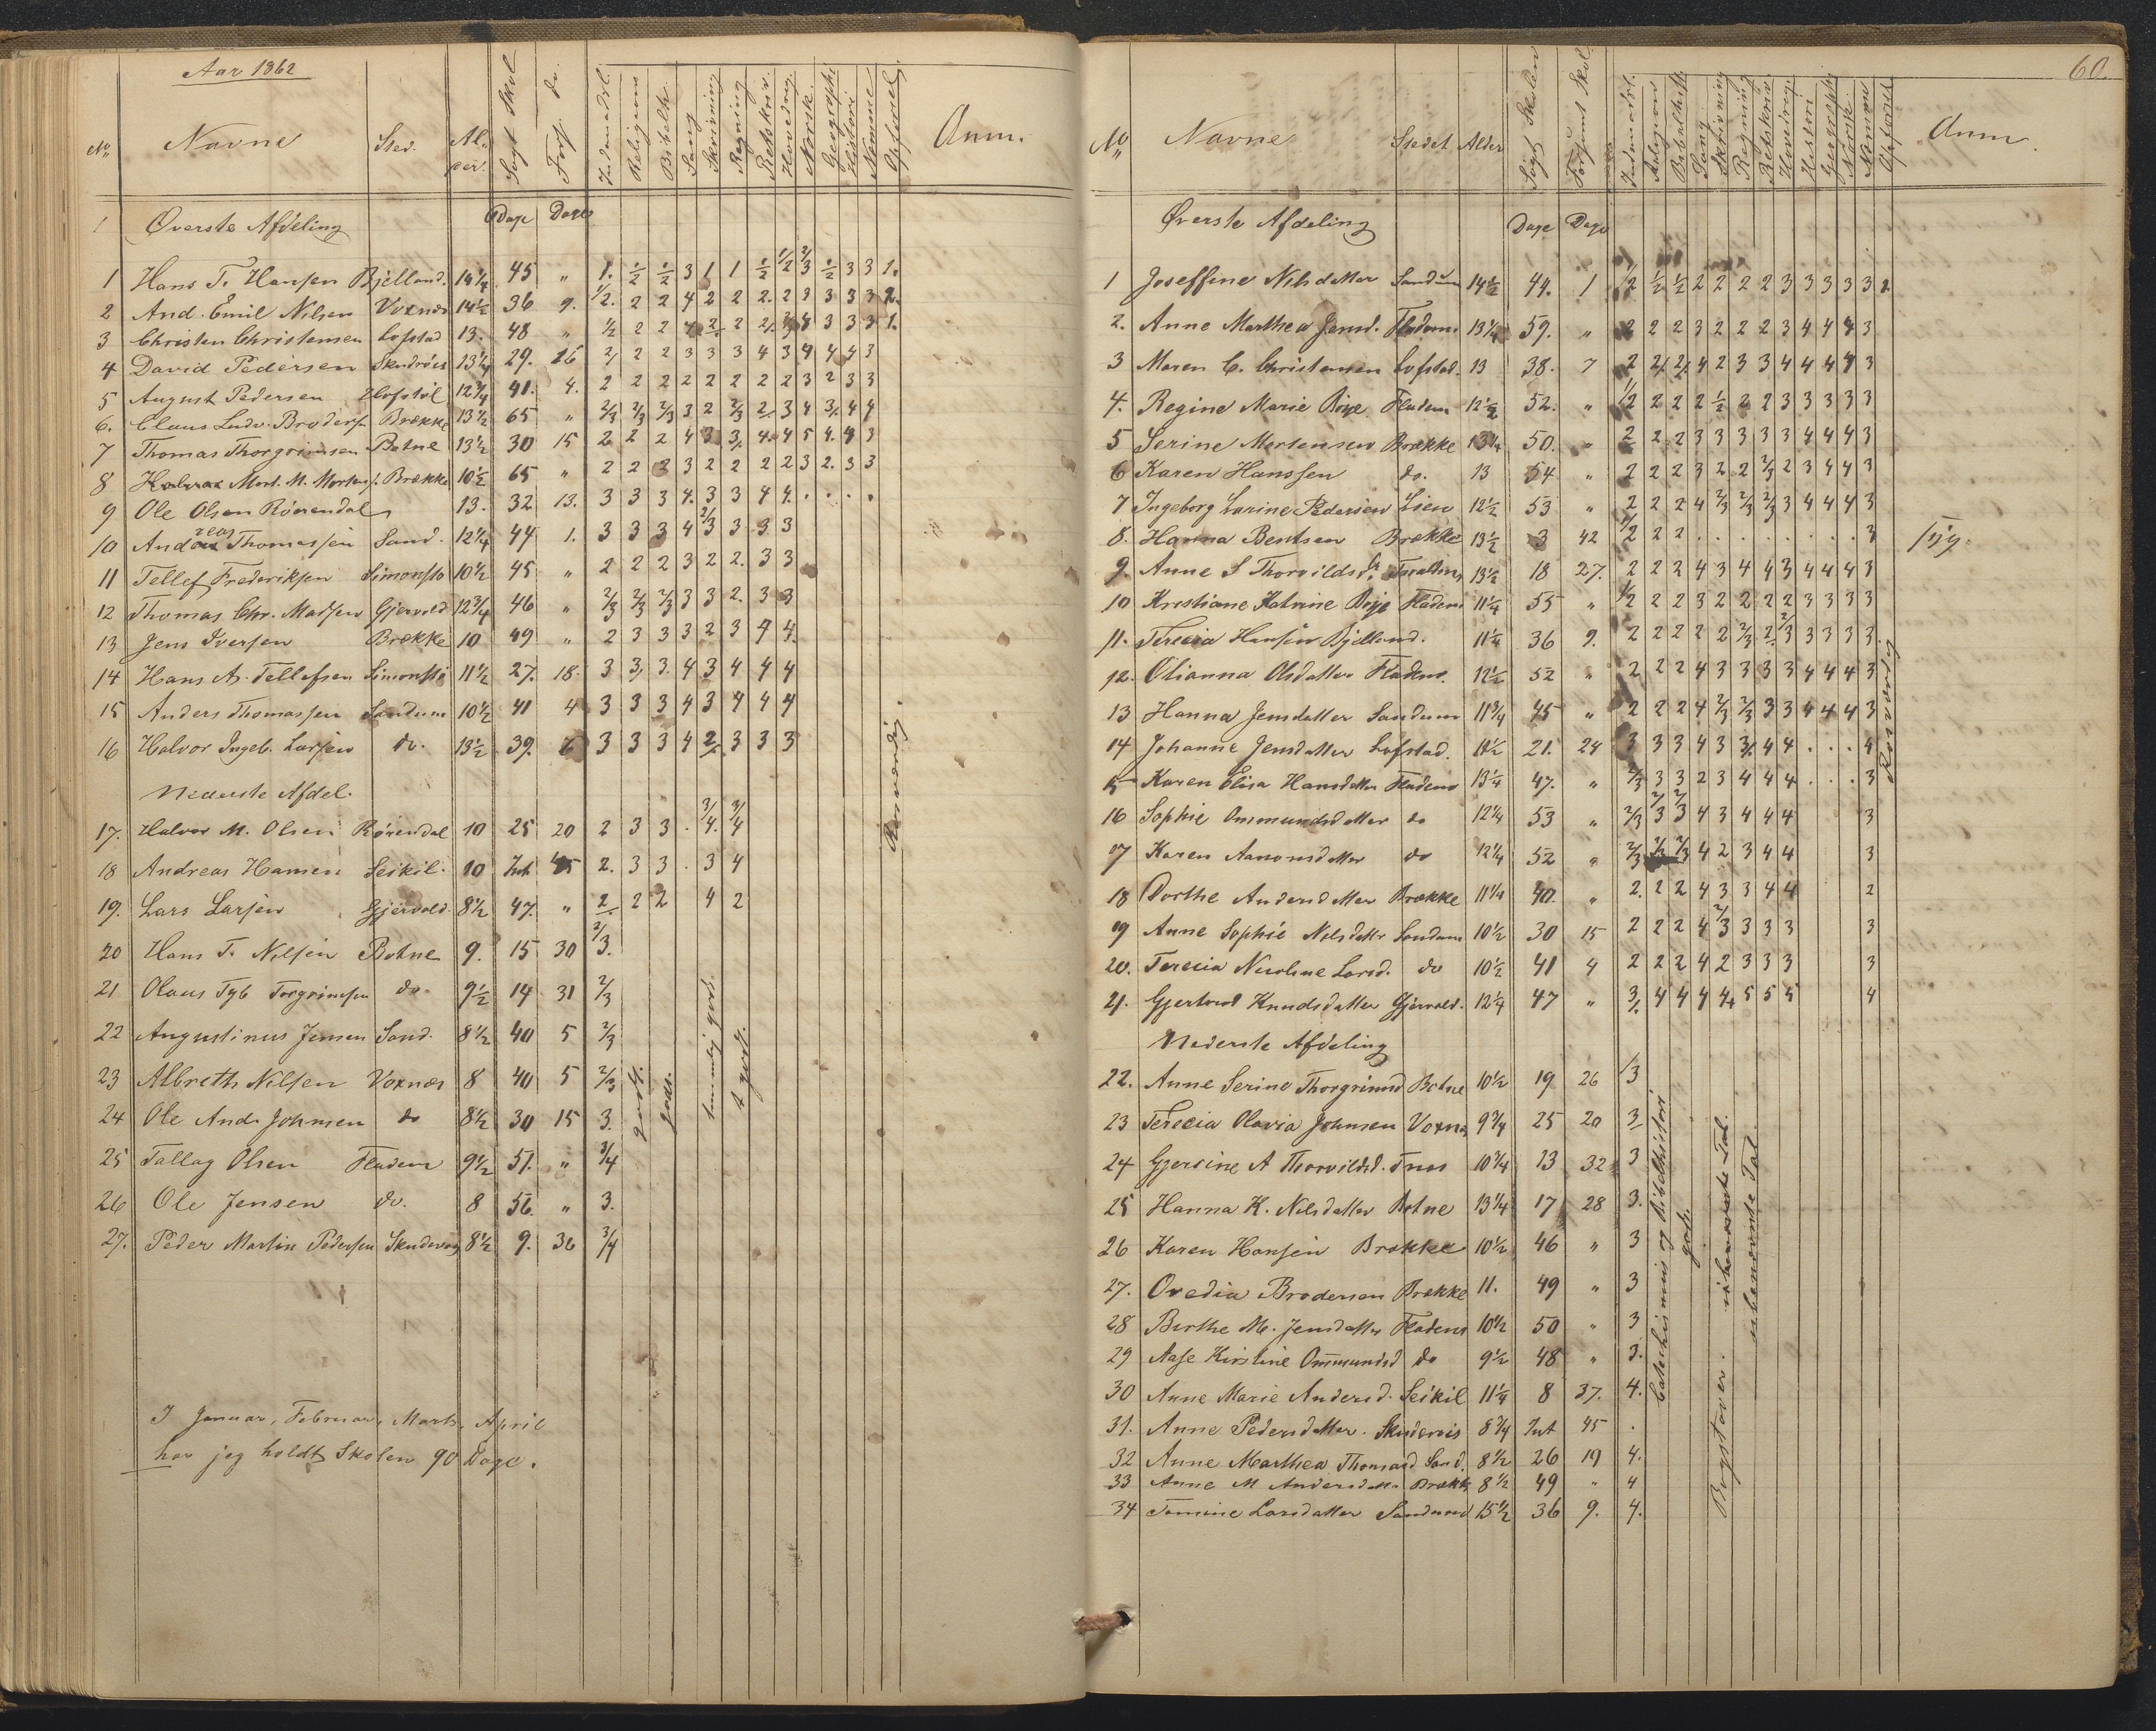 Aar 1862
No Navne Sted. Alder. Søgt Skol Fors. do. Indenadsl. Religion Bibelh. Sang Skrivning Regning Retskriv. Hovedreg. Norsk. Geographi Historie Nemme Opførsel. Anm.
1 Øverste Afdeling Dage Dage
1 Hans T. Hansen Bjelland. 14¼ 45 " 1. ½ ½ 3 1 1 ½ ½ 2/3 ½ 3 3 1.
2 And. Emil Nilsen Voxnæs 14½ 36 9. ½. 2 2 4 2 2 2. 2 3 3 3 3 2.
3 Christen Christensen Lofstad 13. 48 " ½ 2 2 2 2 3 3 3 1.
4 David Pedersen 13¼ 29. 16 2/ 2 2 3 3 3 4 3 4 4 4 3
5 August Pedersen 12¾ 41. 4. 2 2 2 2 2 2 2 2 3 2 3 3
6. Claus Ludv. Broders. Brække 13½ 65 " 2/3 2/3 2/3 3 2 2/3 2/ 3 4 3/. 4 4
7 Thomas Thorgrimsen Botne 13½ 30 15 2 2 2 4 3 3/. 4. 4 5 4. 4 3
8 Mort. M. Mortens. Brække 10½ 65 " 2 2 2 3 2 2 2 2 3 2. 3 3
9 Ole Olsen Rørendal 13. 32 13. 3 3 3 4. 3 3 4 4. . . . .
10 Andreas Thomassen Sand. 12¼ 44 1. 3 3 3 4 2/3 3 3 3
11 Tellef Frederiksen Simonstø 10½ 45 " 2 2 2 3 2 2. 3 3
12 Thomas Chr. Madsen Gjervold 12¾ 46 " 2/3 2/3 2/3 3 3 2. 3 3
13 Jens Iversen Brække 10 49 " 2 3 3 3 2 3 4 4.
14 Hans A. Tellefsen Simonstø 11½ 27. 18. 3 3/ 3. 4 3 4 4 4
15 Anders Thomassen Sandum 10½ 41 4 3 3 3 4 3 4 4 4
16 Halvor Ingeb. Larsen do. 13½ 39. 6 3 3 3 4 2/. 3 3 3
Nederste Afdel.
17. Halvor M. Olsen Rørendal 10 25 20 2 3 3 . 3/4. 3/4
18 Andreas Hansen Seikil. 10 Int 45 2. 3 3 . 3 4
19. Lars Larsen Gjervold 8½ 47. " 2/. 2 2 4 2
20 Hans T. Nilsen Botne 9. 15 30 2/3.
21 Olaus Torgrimsen do. 9½ 14 31 2/3
22 Augustinus Jensen Sand. 8½ 40 5 2/3
23 Albreth Nilsen Voxnæs 8 40 5 2/3
24 Ole And. Johnsen do 8½ 30 15 3.
25 Tallag Olsen Fladene 9½ 51. " 3/4
26 Ole Jensen do. 8 56. " 3.
27. Peder Martin Pedersen 8½ 9. 36 3/4
godt.
godt.
temmelig godt.
t godt.
Rosværdig.
I Januar, Februar, Marts, April
har jeg holdt Skolen 90 Dage.
60.
No Navne Stedet Alder Søgt Skolen Forsømt Skol. Indenadsl. Religion Bibelhist. Sang Skrivning Regning Retskriv. Hovedreg. Historie Geograph. Norsk. Nemme Opførsel Anm.
Øverste Afdeling Dage Dage
1 Joseffine Nilsdatter Sandum 14½ 44. 1 ½ ½ ½ 2 2 2 2 3 3 3 3 3 2
2. Anne Marthea Jensd. Fladene 13¼ 59. " 2 2 2 3 2 2 2 3 4 4 4 3
3 Maren C. Christensen Lofstad. 13 38. 7 2 2/. 2/. 4 2 3 3 4 4 4 4 3
4. Regine Marie Boye Fladene 12½ 52. " ½ 2 2 2 ½ 2 2 3 3 3 3 3
5 Serine Mortensen Brække 13¼ 50. " 2 2 2 3 3 3 3 3 4 4 4 3
6 Karen Hanssen do. 13 54 " 2 2 2 3 2 2 2/3 2 3 4 4 3
7 Ingeborg Larine Pedersen Lien 12½ 53 " 2 2 2 4 2/3 2/3 2/3 3 4 4 4 3
8. Hanna Bentsen Brække 13½ 3 42 ½ 2 2 . . . . . . . . 3 syg.
9. Anne S Thorvildsd. 13½ 18 27. 2 2 2 4 3 4 4 3 4 4 4 3
10 Kristiane Katrine Boye Fladene 11¼ 55 " ½ 2 2 3 2 2 2 2 3 3 3 3
11. Terecia Hansen Bjelland. 11¼ 36 9. 2 2 2 2 2 2/3 2 2/3 3 3 3 3
12. Olianna Olsdatter Fladene. 12½ 52 " 2 2 2 4 3 3 3 3 4 4 4 3
13 Hanna Jensdatter Sandum 11¾ 45 " 2 2 2 4 2/3 2/3 3 3 4 4 4 3
14 Johanne Jensdatter Lofstad. 11½ 21. 24 3 3 3 4 3 3/. 4 4 . . . 4
15 Karen Elisa Hansdatter Fladene 13¼ 47. " 2/3 3 3 2 3 4 4 4 . . . 3
16 Sophie Ommundsdatter do 12¼ 53 " 2/3 2/3 2/3 4 3 4 4 4 3
17 Karen Aanonsdatter do 12¼ 52 " 2/3 2/3 2/3 4 2 3 4 4 3
18 Dorthe Andersdatter Brække 11¼ 40. " 2. 2 2 4 3 3 4 4 2
19 Anne Sophie Nilsdattr Sandum 10½ 30 15 2 2 2 4 2/3 3 3 3 3
20. Terecia Nicoline Larsd. do 10½ 41 4 2 2 2 4 2 3 3 3 3
21. Gjertrud Knudsdatter Gjervold. 12¼ 47 " 3/. 4 4 4 4 5 5 5 4
Nederste Afdeling
22. Anne Serine Thorgrimsd Botne 10½ 19 26 3
23 Terecia Olavia Johnsen Voxnæs 9¾ 25 20 3/
24 Gjersine A Thorvildsd. 10¾ 13 32 3
25 Hanna K. Nilsdatter Botne 13¼ 17 28 3.
26 Karen Hansen Brække 10½ 46 " 3
27. Ovedia Brodersen Brække 11. 49 " 3
28 Birthe M. Jensdatter Fladene 10½ 50 " 3
29 Aase Kirstine Ommundsd do 9½ 48 " 3.
30 Anne Marie Andersd. Seikil 11¼ 8 37. 4.
31. Anne Pedersdatter. 8¾ Int 45 .
32 Anne Marthea Thomasd. Sand. 8½ 26 19 4.
33 Anne M Andersdatt. Brækk 8½ 49 " 4
34 Tomine Larsdatter Sandum 15½ 36 9. 4.
Catechismus og Bibelhistori
godt.
Bogstaver.
ubenævnte Tal.
Rosværdig